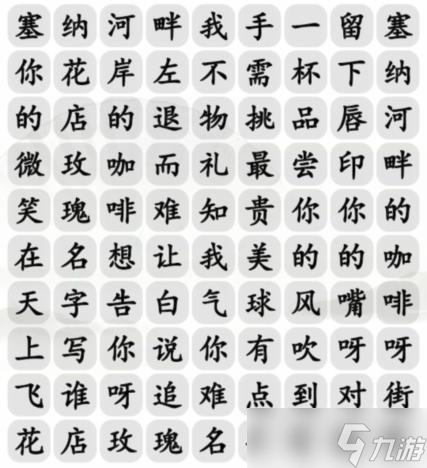 塞纳河畔我手一留塞
你花岸左不需杯下纳
的店的退物挑品唇河
微玫咖而礼最尝印畔
笑瑰啡难知贵你你的
在名想让我美的的咖
天字告白气球风嘴啡
上写你说你有吹呀呀
飞谁呀追难点到对街
花店玫瑰名
九游